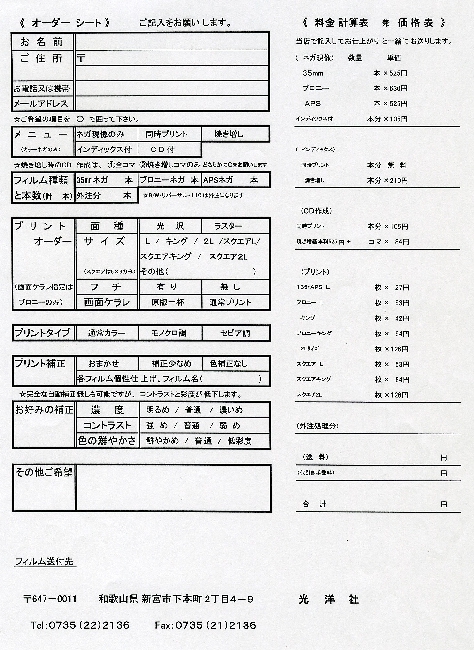 《 オーダー シート 》　ご記入をお願いします。
お 名 前
ご 住 所　〒
お電話又は携帯
メールアドレス
☆ご希望の項目を 〇 で囲って下さい。
メ ニ ュ ー　ネガ現像のみ　同時プリント　焼き増し
インデックス付　CD付
フィルム種類　35㎜ネガ　本　ブロニーネガ　本　APSネガ　本
と本数(計　本)　外注分　本
プ リ ン ト　面 種　光 沢　ラスター
オーダー　サ イ ズ　L / キング / 2L /スクエアL/
スクエアキング / スクエア2L
その他(　　)
(画面ケラレ指定は　フ チ　有 り　無 し
ブロニーのみ)　画面ケラレ　原版一杯　通常プリント
プリントタイプ　通常カラー　モノクロ調　セピア調
プリント補正　おまかせ　補正少なめ　色補正なし
各フィルム個性仕上げ、フィルム名(　　)
お好みの補正　濃 度　明るめ / 普通 / 濃いめ
コントラスト　強 め / 普通 / 弱 め
色の鮮やかさ　鮮やかめ / 普通 / 低彩度
その他ご希望
フィルム送付先
〒647-0011　和歌山県 新宮市下本町2丁目4-9　光 洋 社
Tel:0735(22)2136　Fax:0735(21)2136
《 料金計算表 兼 価格表 》
当店で記入してお仕上がりと一緒にお送りします。
(ネガ現像)　数量　単価
35mm　本×525円
ブロニー　本×630円
APS　本×525円
インデックス付　本分×105円
(インデックス)
同時プリント　本分 無料
焼き増し　本分×210円
(CD作成)
同時プリント　本分×105円
(プリント)
135・APS L　枚× 27円
ブロニー　枚× 53円
キング　枚× 42円
ブロニーキング　枚× 84円
枚×126円
スクエア L　枚× 53円
スクエアキング　枚× 84円
スクエア2L　枚×126円
(外注処理分)
(送 料)　円
円
合 計　円